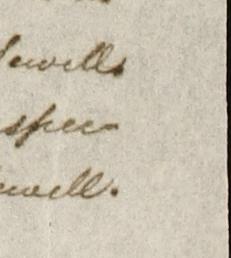 Sewells
spec-
ewell.